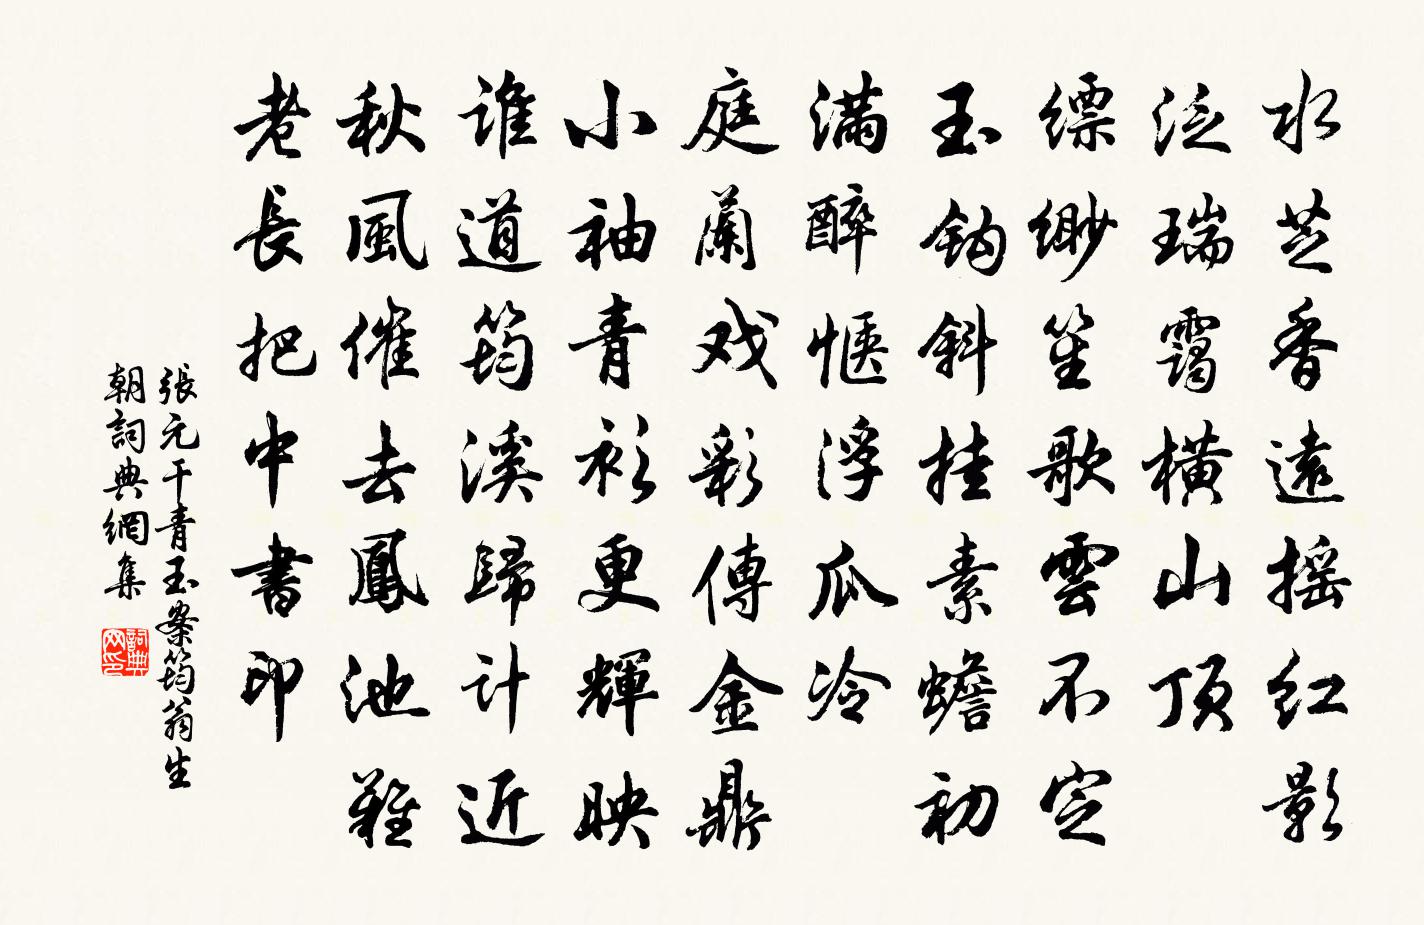 水芝香遠摇红影
泛瑞靄横山顶
缥缈笙歌雲不定
玉鈎斜挂素蟾初
满醉惬浮瓜冷
庭蘭戏彩傳金鼎
小袖青衫更輝映
谁道筠溪歸计近
秋風催去鳳池難
老長把中書印
張元干青玉案筠翁生
朝詞典網集
詞典网印